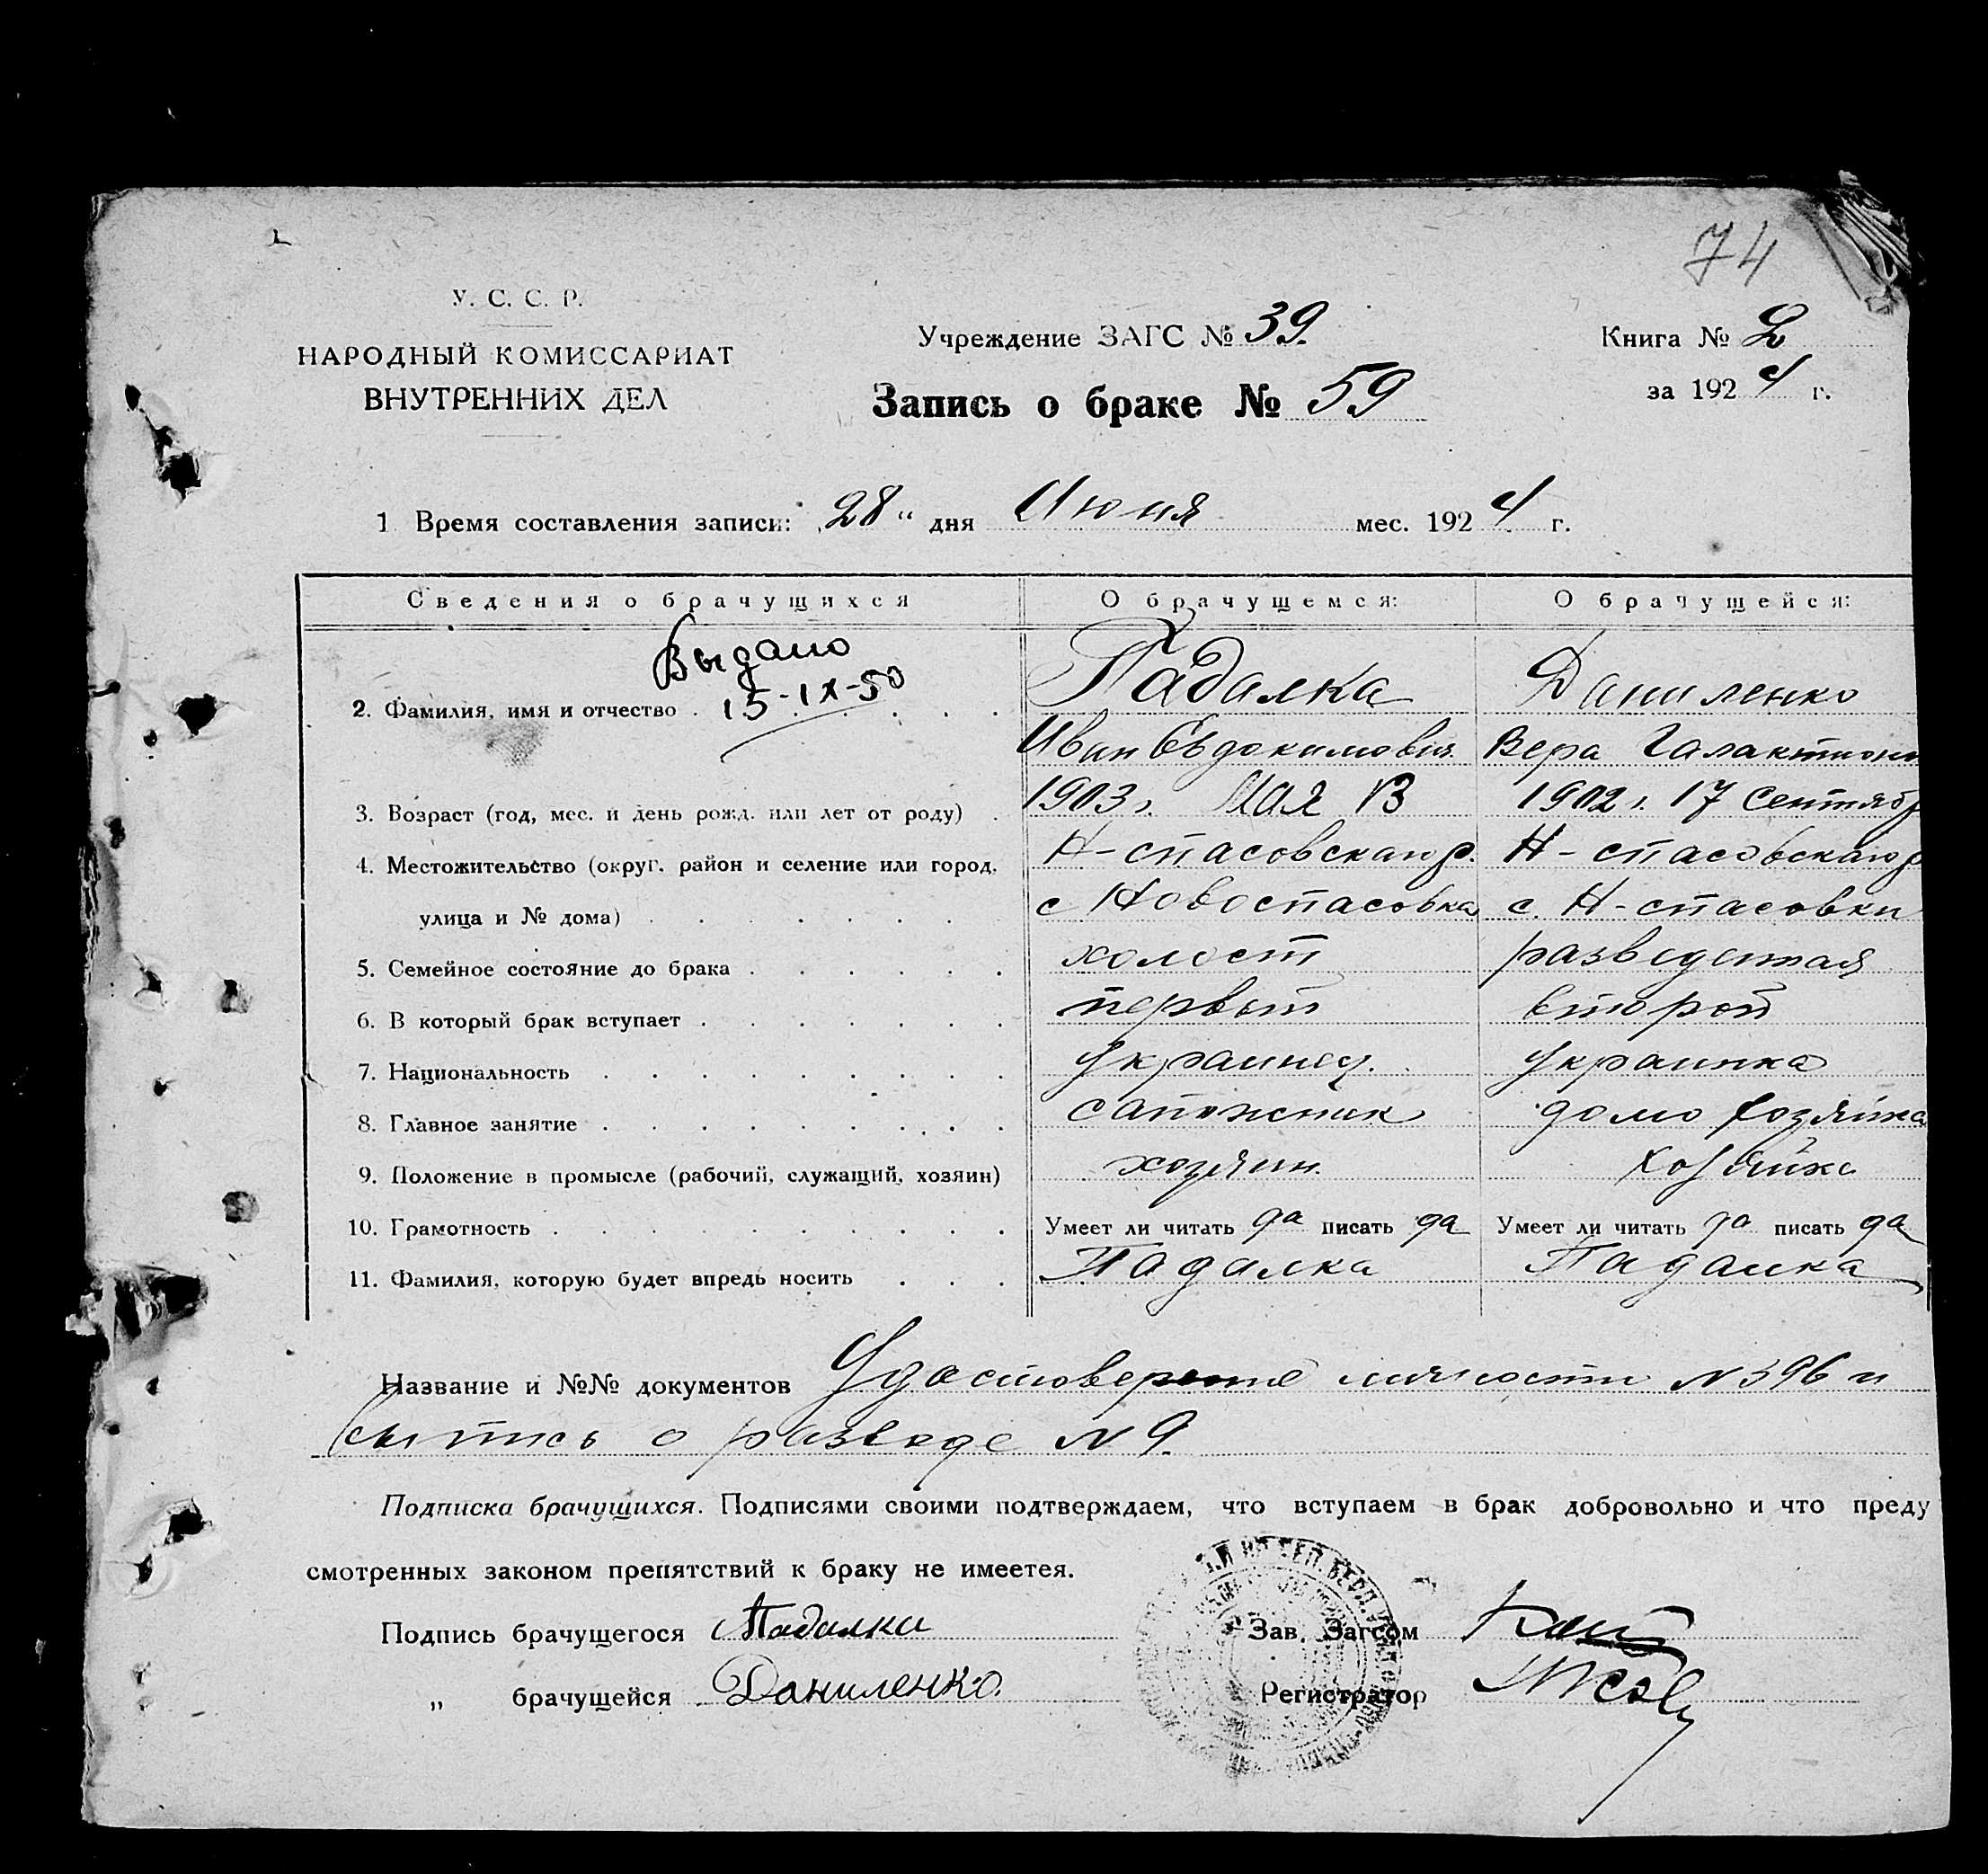 74
У. С. С. Р.
НАРОДНЫЙ КОМИССАРИАТ
ВНУТРЕННИХ ДЕЛ
Учреждение ЗАГС № 39.
Запись о браке № 59
Книга № 2
за 1924 г.
1 Время составления записи: „28" дня Июня мес. 1924 г.
Сведения о брачущихся О брачущемся: О брачущейся:
Выдано
15-IX-50
2. Фамилия, имя и отчество Падалка Даниленко
Иван Евдокимович Вера Галактионо
3. Возраст (год, мес. и день рожд. или лет от роду) 1903 г. мая 13 1902 г. 17 Сентябр
4. Местожительство (округ, район и селение или город, Н-спасовскаго р. Н-спасовскаго р
улица и № дома) с Новоспасовка с. Н-спасовки
5. Семейное состояние до брака холост разведенная
6. В который брак вступает первый второй
7. Национальность Украинец. Украинка
8. Главное занятие сапожник домо хозяйка
9. Положение в промысле (рабочий, служащий, хозяин) хозяин. Хозяйка
10. Грамотность Умеет ли читать да писать да Умеет ли читать да писать да
11. Фамилия, которую будет впредь носить Падалка Падалка
Название и №№ документов Удостоверение личности N 396 и
выпись о разводе N 9.
Подписка брачущихся. Подписями своими подтверждаем, что вступаем в брак добровольно и что преду
смотренных законом препятствий к браку не имеется.
Подпись брачущегося Падалка Зав. Загсом
„ брачущейся Даниленко. Регистратор